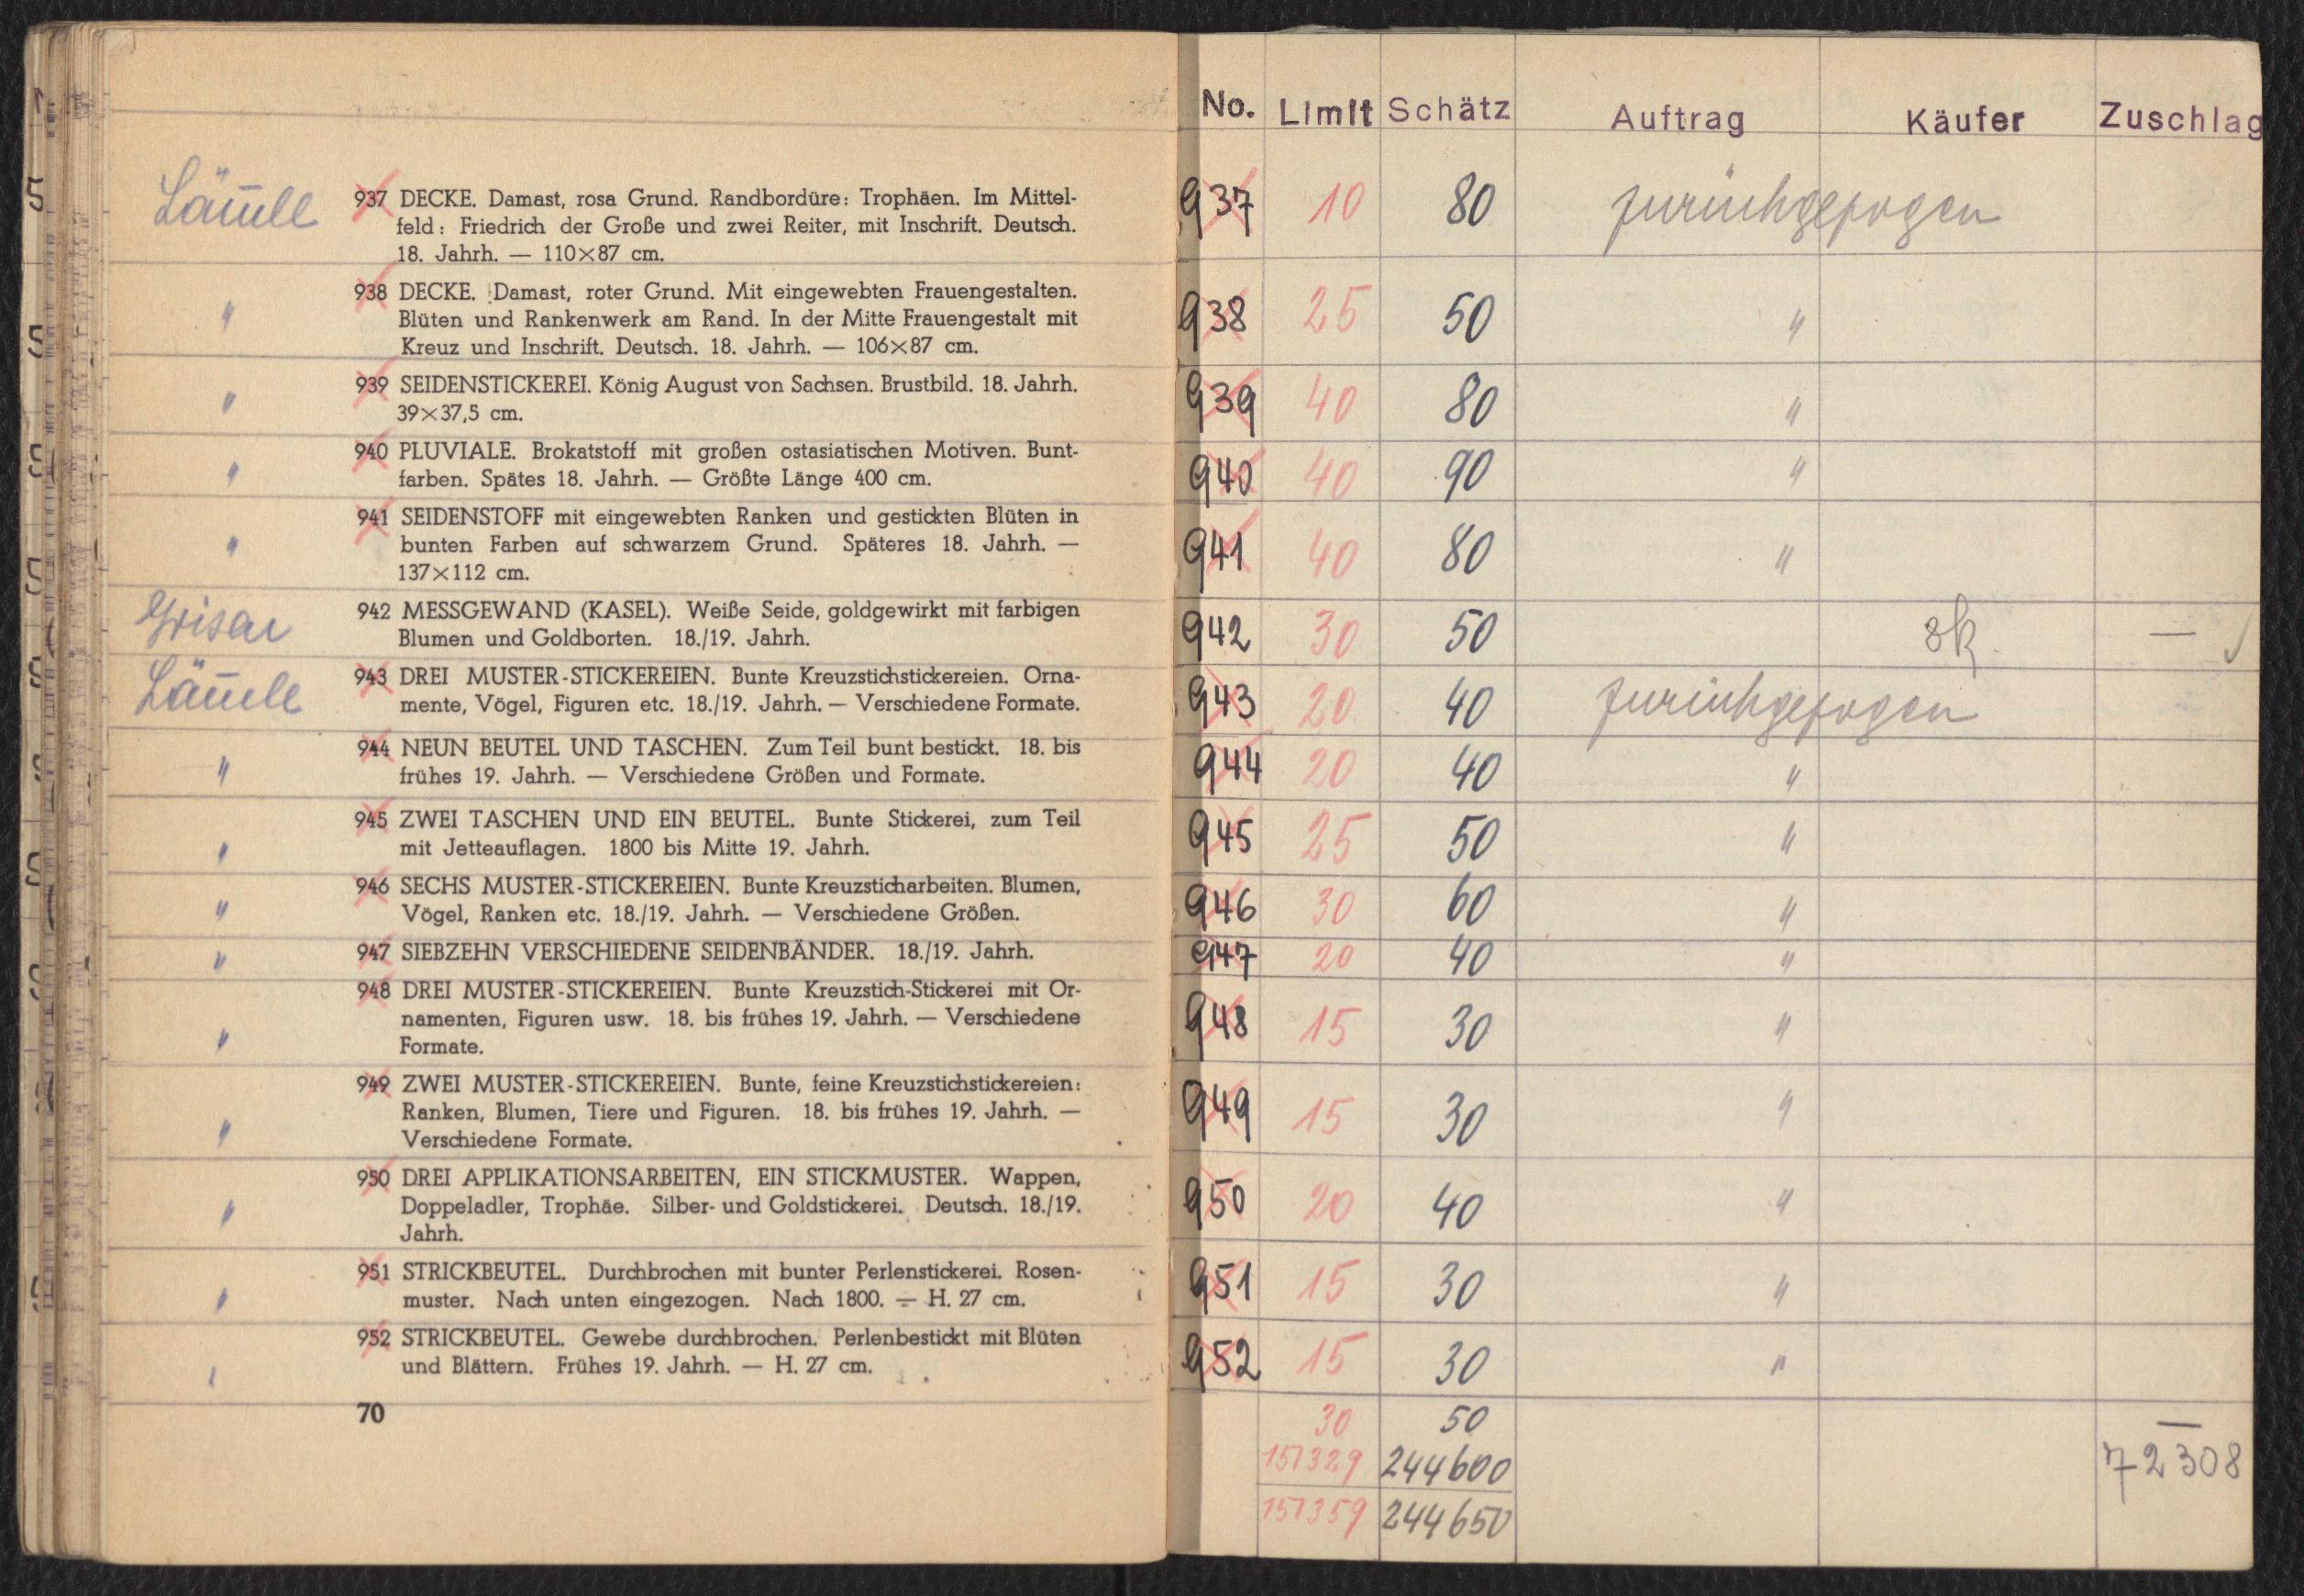 Lämle
937 DECKE. Damast, rosa Grund. Randbordüre: Trophäen. Im Mittel-
feld: Friedrich der Große und zwei Reiter, mit Inschrift. Deutsch.
18. Jahrh. — 110×87 cm.
" 938 DECKE. Damast, roter Grund. Mit eingewebten Frauengestalten.
Blüten und Rankenwerk am Rand. In der Mitte Frauengestalt mit
Kreuz und Inschrift. Deutsch. 18. Jahrh. — 106×87 cm.
" 939 SEIDENSTICKEREI. König August von Sachsen. Brustbild. 18. Jahrh.
39×37,5 cm.
" 940 PLUVIALE. Brokatstoff mit großen ostasiatischen Motiven. Bunt-
farben. Spätes 18. Jahrh. — Größte Länge 400 cm.
" 941 SEIDENSTOFF mit eingewebten Ranken und gestickten Blüten in
bunten Farben auf schwarzem Grund. Späteres 18. Jahrh. —
137×112 cm.
Grisar
942 MESSGEWAND (KASEL). Weiße Seide, goldgewirkt mit farbigen
Blumen und Goldborten. 18./19. Jahrh.
Lämle
943 DREI MUSTER-STICKEREIEN. Bunte Kreuzstichstickereien. Orna-
mente, Vögel, Figuren etc. 18./19. Jahrh. — Verschiedene Formate.
" 944 NEUN BEUTEL UND TASCHEN. Zum Teil bunt bestickt. 18. bis
frühes 19. Jahrh. — Verschiedene Größen und Formate.
" 945 ZWEI TASCHEN UND EIN BEUTEL. Bunte Stickerei, zum Teil
mit Jetteauflagen. 1800 bis Mitte 19. Jahrh.
" 946 SECHS MUSTER-STICKEREIEN. Bunte Kreuzsticharbeiten. Blumen,
Vögel, Ranken etc. 18./19. Jahrh. — Verschiedene Größen.
" 947 SIEBZEHN VERSCHIEDENE SEIDENBÄNDER. 18./19. Jahrh.
" 948 DREI MUSTER-STICKEREIEN. Bunte Kreuzstich-Stickerei mit Or-
namenten, Figuren usw. 18. bis frühes 19. Jahrh. — Verschiedene
Formate.
" 949 ZWEI MUSTER-STICKEREIEN. Bunte, feine Kreuzstichstickereien:
Ranken, Blumen, Tiere und Figuren. 18. bis frühes 19. Jahrh. —
Verschiedene Formate.
" 950 DREI APPLIKATIONSARBEITEN, EIN STICKMUSTER. Wappen,
Doppeladler, Trophäe. Silber- und Goldstickerei. Deutsch. 18./19.
Jahrh.
" 951 STRICKBEUTEL. Durchbrochen mit bunter Perlenstickerei. Rosen-
muster. Nach unten eingezogen. Nach 1800. — H. 27 cm.
" 952 STRICKBEUTEL. Gewebe durchbrochen. Perlenbestickt mit Blüten
und Blättern. Frühes 19. Jahrh. — H. 27 cm.
70
No. Limit Schätz Auftrag Käufer Zuschlag
937 10 80 zurückgezogen
938 25 50 "
939 40 80 "
940 40 90 "
941 40 80 "
942 30 50 —
943 20 40 zurückgezogen
944 20 40 "
945 25 50 "
946 30 60 "
947 20 40 "
948 15 30 "
949 15 30 "
950 20 40 "
951 15 30 "
952 15 30 "
30 50 —
151329 244600 72308
151359 244650